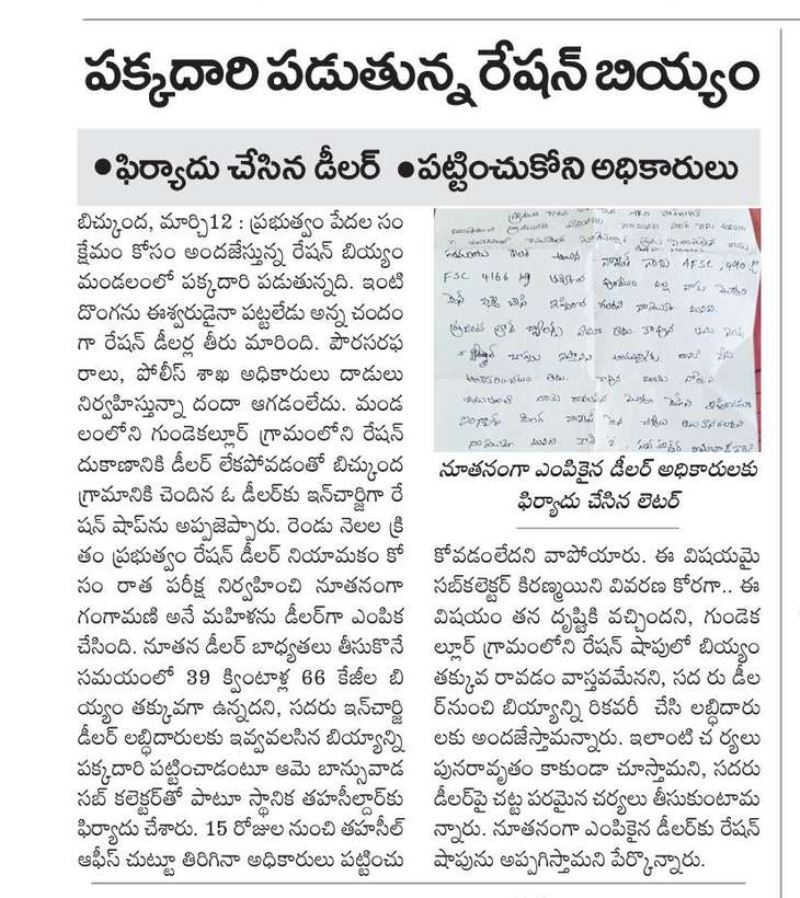 పక్కదారి పడుతున్న రేషన్ బియ్యం
●ఫిర్యాదు చేసిన డీలర్ ●పట్టించుకోని అధికారులు
బిచ్కుంద, మార్చి12 : ప్రభుత్వం పేదల సం
క్షేమం కోసం అందజేస్తున్న రేషన్ బియ్యం
మండలంలో పక్కదారి పడుతున్నది. ఇంటి
దొంగను ఈశ్వరుడైనా పట్టలేడు అన్న చందం
గా రేషన్ డీలర్ల తీరు మారింది. పౌరసరఫ
రాలు, పోలీస్ శాఖ అధికారులు దాడులు
నిర్వహిస్తున్నా దందా ఆగడంలేదు. మండ
లంలోని గుండెకల్లూర్ గ్రామంలోని రేషన్
దుకాణానికి డీలర్ లేకపోవడంతో బిచ్కుంద
గ్రామానికి చెందిన ఓ డీలర్‌కు ఇన్‌చార్జిగా రే
షన్ షాప్‌ను అప్పజెప్పారు. రెండు నెలల క్రి
తం ప్రభుత్వం రేషన్ డీలర్ నియామకం కో
సం రాత పరీక్ష నిర్వహించి నూతనంగా
గంగామణి అనే మహిళను డీలర్‌గా ఎంపిక
చేసింది. నూతన డీలర్ బాధ్యతలు తీసుకొనే
సమయంలో 39 క్వింటాళ్ల 66 కేజీల బి
య్యం తక్కువగా ఉన్నదని, సదరు ఇన్‌చార్జి
డీలర్ లబ్ధిదారులకు ఇవ్వవలసిన బియ్యాన్ని
పక్కదారి పట్టించాడంటూ ఆమె బాన్సువాడ
సబ్ కలెక్టర్‌తో పాటూ స్థానిక తహసీల్దార్‌కు
ఫిర్యాదు చేశారు. 15 రోజుల నుంచి తహసీల్
ఆఫీస్ చుట్టూ తిరిగినా అధికారులు పట్టించు
AFSC, 490
FSC 4166 kg
నూతనంగా ఎంపికైన డీలర్ అధికారులకు
ఫిర్యాదు చేసిన లెటర్
కోవడంలేదని వాపోయారు. ఈ విషయమై
సబ్‌కలెక్టర్ కిరణ్మయిని వివరణ కోరగా.. ఈ
విషయం తన దృష్టికి వచ్చిందని, గుండెక
ల్లూర్ గ్రామంలోని రేషన్ షాపులో బియ్యం
తక్కువ రావడం వాస్తవమేనని, సద రు డీల
ర్‌నుంచి బియ్యాన్ని రికవరీ చేసి లబ్ధిదారు
లకు అందజేస్తామన్నారు. ఇలాంటి చ ర్యలు
పునరావృతం కాకుండా చూస్తామని, సదరు
డీలర్‌పై చట్ట పరమైన చర్యలు తీసుకుంటామ
న్నారు. నూతనంగా ఎంపికైన డీలర్‌కు రేషన్
షాపును అప్పగిస్తామని పేర్కొన్నారు.